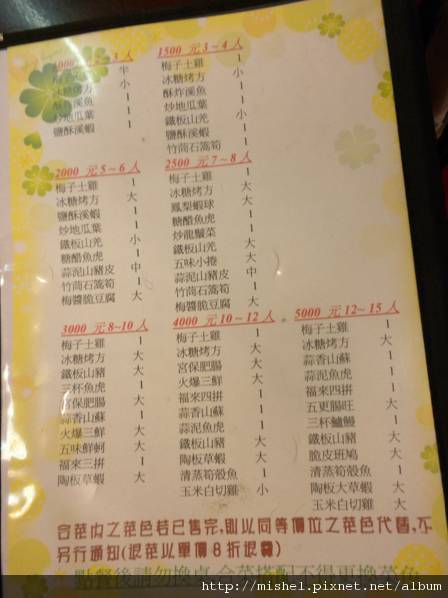 1000 元 2~3 人
梅子土雞 半
冰糖烤方 小
酥炸溪魚 1
炒地瓜葉 1
鹽酥溪蝦 1
1500 元 3~4 人
梅子土雞 1
冰糖烤方 小
酥炸溪魚 1
炒地瓜葉 1
鐵板山羌 小
鹽酥溪蝦 1
竹茼石蒿筍 1
2000 元 5~6 人
梅子土雞 1
冰糖烤方 大
鹽酥溪蝦 1
炒地瓜葉 1
鐵板山羌 小
糖醋魚虎 1
蒜泥山豬皮 中
竹茼石蒿筍 1
梅醬脆豆腐 大
2500 元 7~8 人
梅子土雞 1
冰糖烤方 大
鳳梨蝦球 1
糖醋魚虎 1
炒龍鬚菜 1
鐵板山羌 大
五味小捲 大
蒜泥山豬皮 中
竹茼石蒿筍 1
梅醬脆豆腐 大
3000 元 8~10 人
梅子土雞 1
冰糖烤方 大
鐵板山豬 大
三杯魚虎 1
宮保肥腸 大
蒜香山蘇 1
火爆三鮮 大
五味鮮蚵 大
福來三拼 1
陶板草蝦 大
4000 元 10~12 人
梅子土雞 1
冰糖烤方 大
宮保肥腸 大
火爆三鮮 大
福來四拼 1
蒜香山蘇 1
蒜泥魚虎 1
鐵板山豬 大
陶板草蝦 大
清蒸筍殼魚 1
玉米白切雞 小
5000 元 12~15 人
梅子土雞 1
冰糖烤方 大
蒜香山蘇 1
蒜泥魚虎 1
福來四拼 1
五更腸旺 大
三杯鱸鰻 1
鐵板山豬 大
脆皮斑鳩 大
清蒸筍殼魚 1
陶板大草蝦 大
玉米白切雞 大
合菜內之菜色若已售完,則以同等價位之菜色代替,不
另行通知(退菜以單價8折退費)
點餐後請勿換桌 合菜搭配不得更換菜色
http://mishel.tw/album